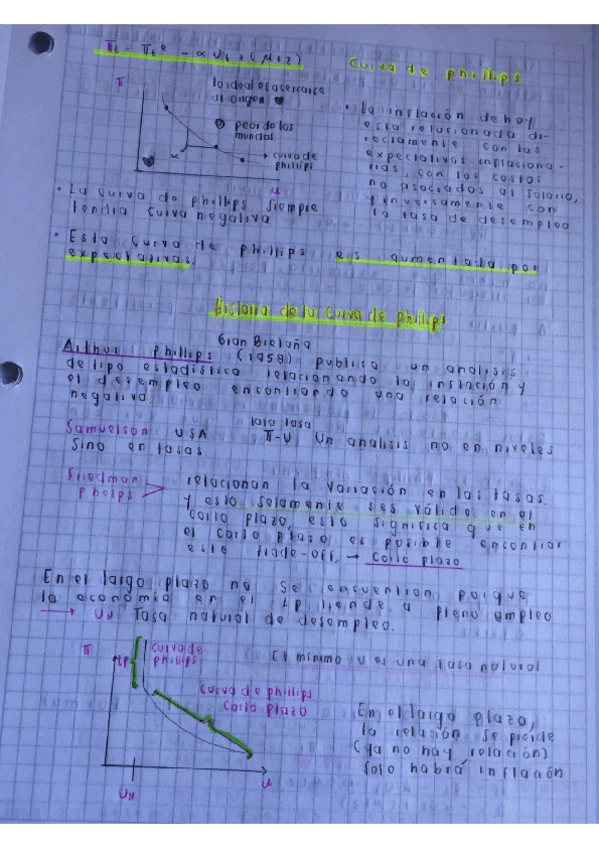 πt = πt^e - αUt + (M+z)
Curva de phillips
π
lo ideal es acercarse
al origen ♥
peor de los
mundos
α
curva de
phillips
u
• la inflación de hoy
esta relacionada di-
rectamente con las
expectativas inflaciona-
rias, con los costos
no asociados al salario,
y inversamente con
la tasa de desempleo
• La curva de phillips siempre
tendra curva negativa
• Esta curva de phillips es aumentada por
expectativas.
Historia de la Curva de phillips
Gran Bretaña
Arthur phillips (1958) publica un analisis
de tipo estadistico relacionando la inflación y
el desempleo encontrando una relación
negativa.
tasa tasa
Samuelson USA π-U un analisis no en niveles
sino en tasas
Friedman
phelps
relacionan la variación en las tasas.
y esto solamente es válido en el
corto plazo, esto significa que en
el corto plazo es posible encontrar
este trade-off, → corto plazo
En el largo plazo no se encuentran porque
la economia en el lp tiende a pleno empleo
→ UN Tasa natural de desempleo.
π
lp
curva de
phillips
El minimo u es una tasa natural
curva de phillips
corto plazo
En el largo plazo,
la relación se pierde
(ya no hay relación)
solo habrá inflación
u
UN